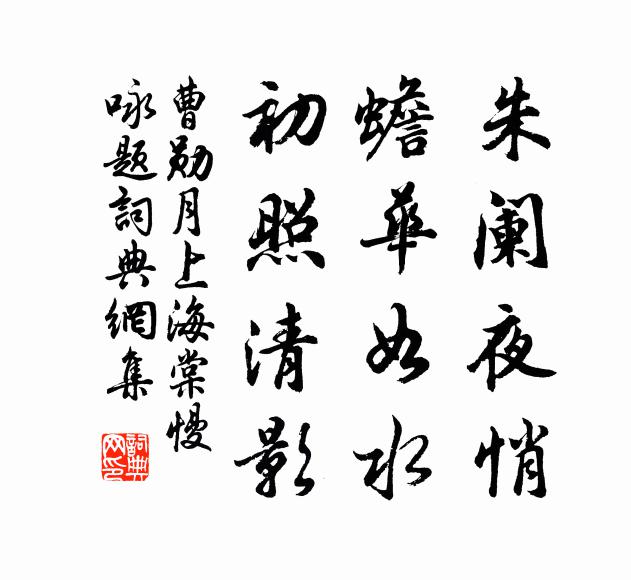 朱阑夜悄
蟾華如水
初照清影
曹勋月上海棠慢
咏题詞典網集
詞典網印